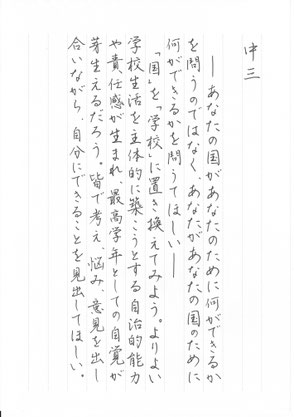 中三
――あなたの国があなたのために何ができるか
を問うのではなく、あなたがあなたの国のために
何ができるかを問うてほしい――
「国」を「学校」に置き換えてみよう。よりよい
学校生活を主体的に築こうとする自治的能力
や責任感が生まれ、最高学年としての自覚が
芽生えるだろう。皆で考え、悩み、意見を出し
合いながら、自分にできることを見出してほしい。